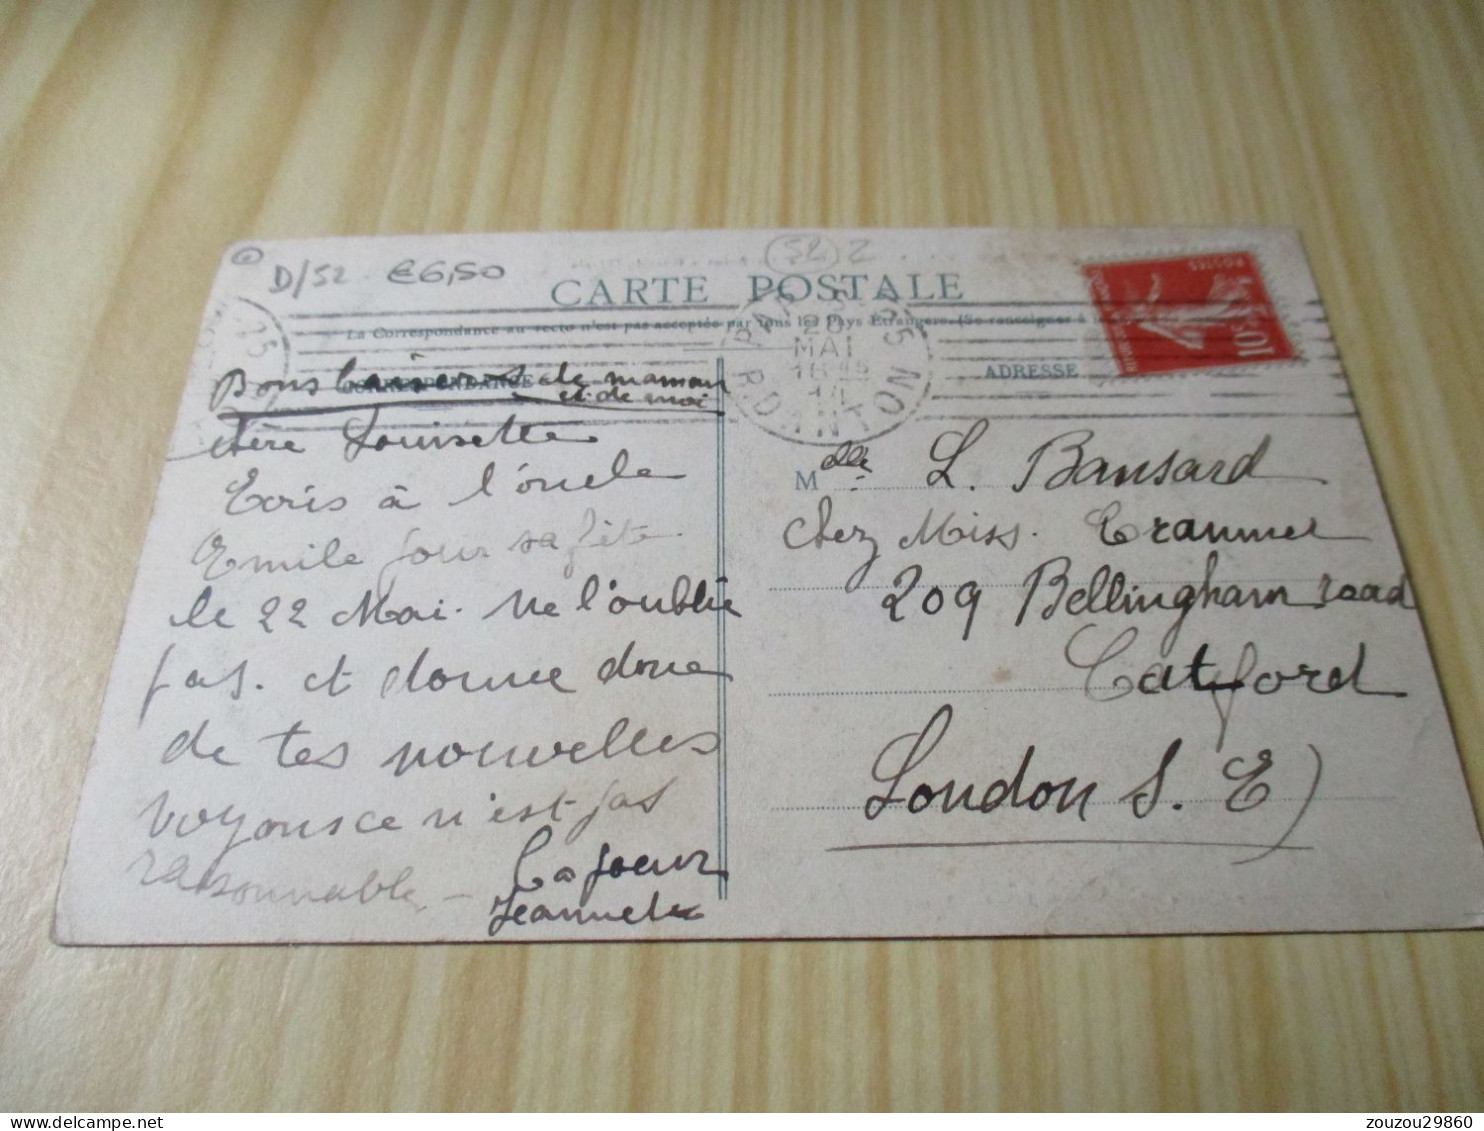 D/52 €6,50
52 2
CARTE POSTALE
La Correspondance au recto n'est pas acceptée par tous les Pays Étrangers. (Se renseigner à
CORRESPONDANCE
ADRESSE
PARIS 25
R. DANTON
20
MAI
14
POSTES
10c
Bons baisers de maman
et de moi
chère Louisette
Ecris à l'oncle
Emile pour sa fête
le 22 Mai. Ne l'oublie
pas. et donne donc
de tes nouvelles
voyons ce n'est pas
raisonnable – Ta soeur
Jeannette
Mlle. L. Bansard
chez Miss. Cranmer
209 Bellingham road
Catford
London S. E)
zouzou29860